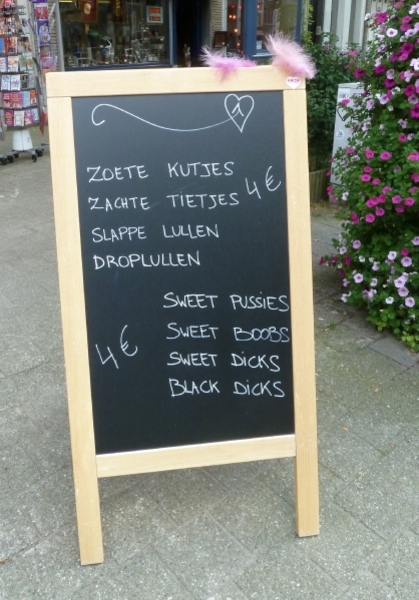 1
ZOETE KUTJES
ZACHTE TIETJES 4€
SLAPPE LULLEN
DROPLULLEN
SWEET PUSSIES
SWEET BOOBS
4€ SWEET DICKS
BLACK DICKS